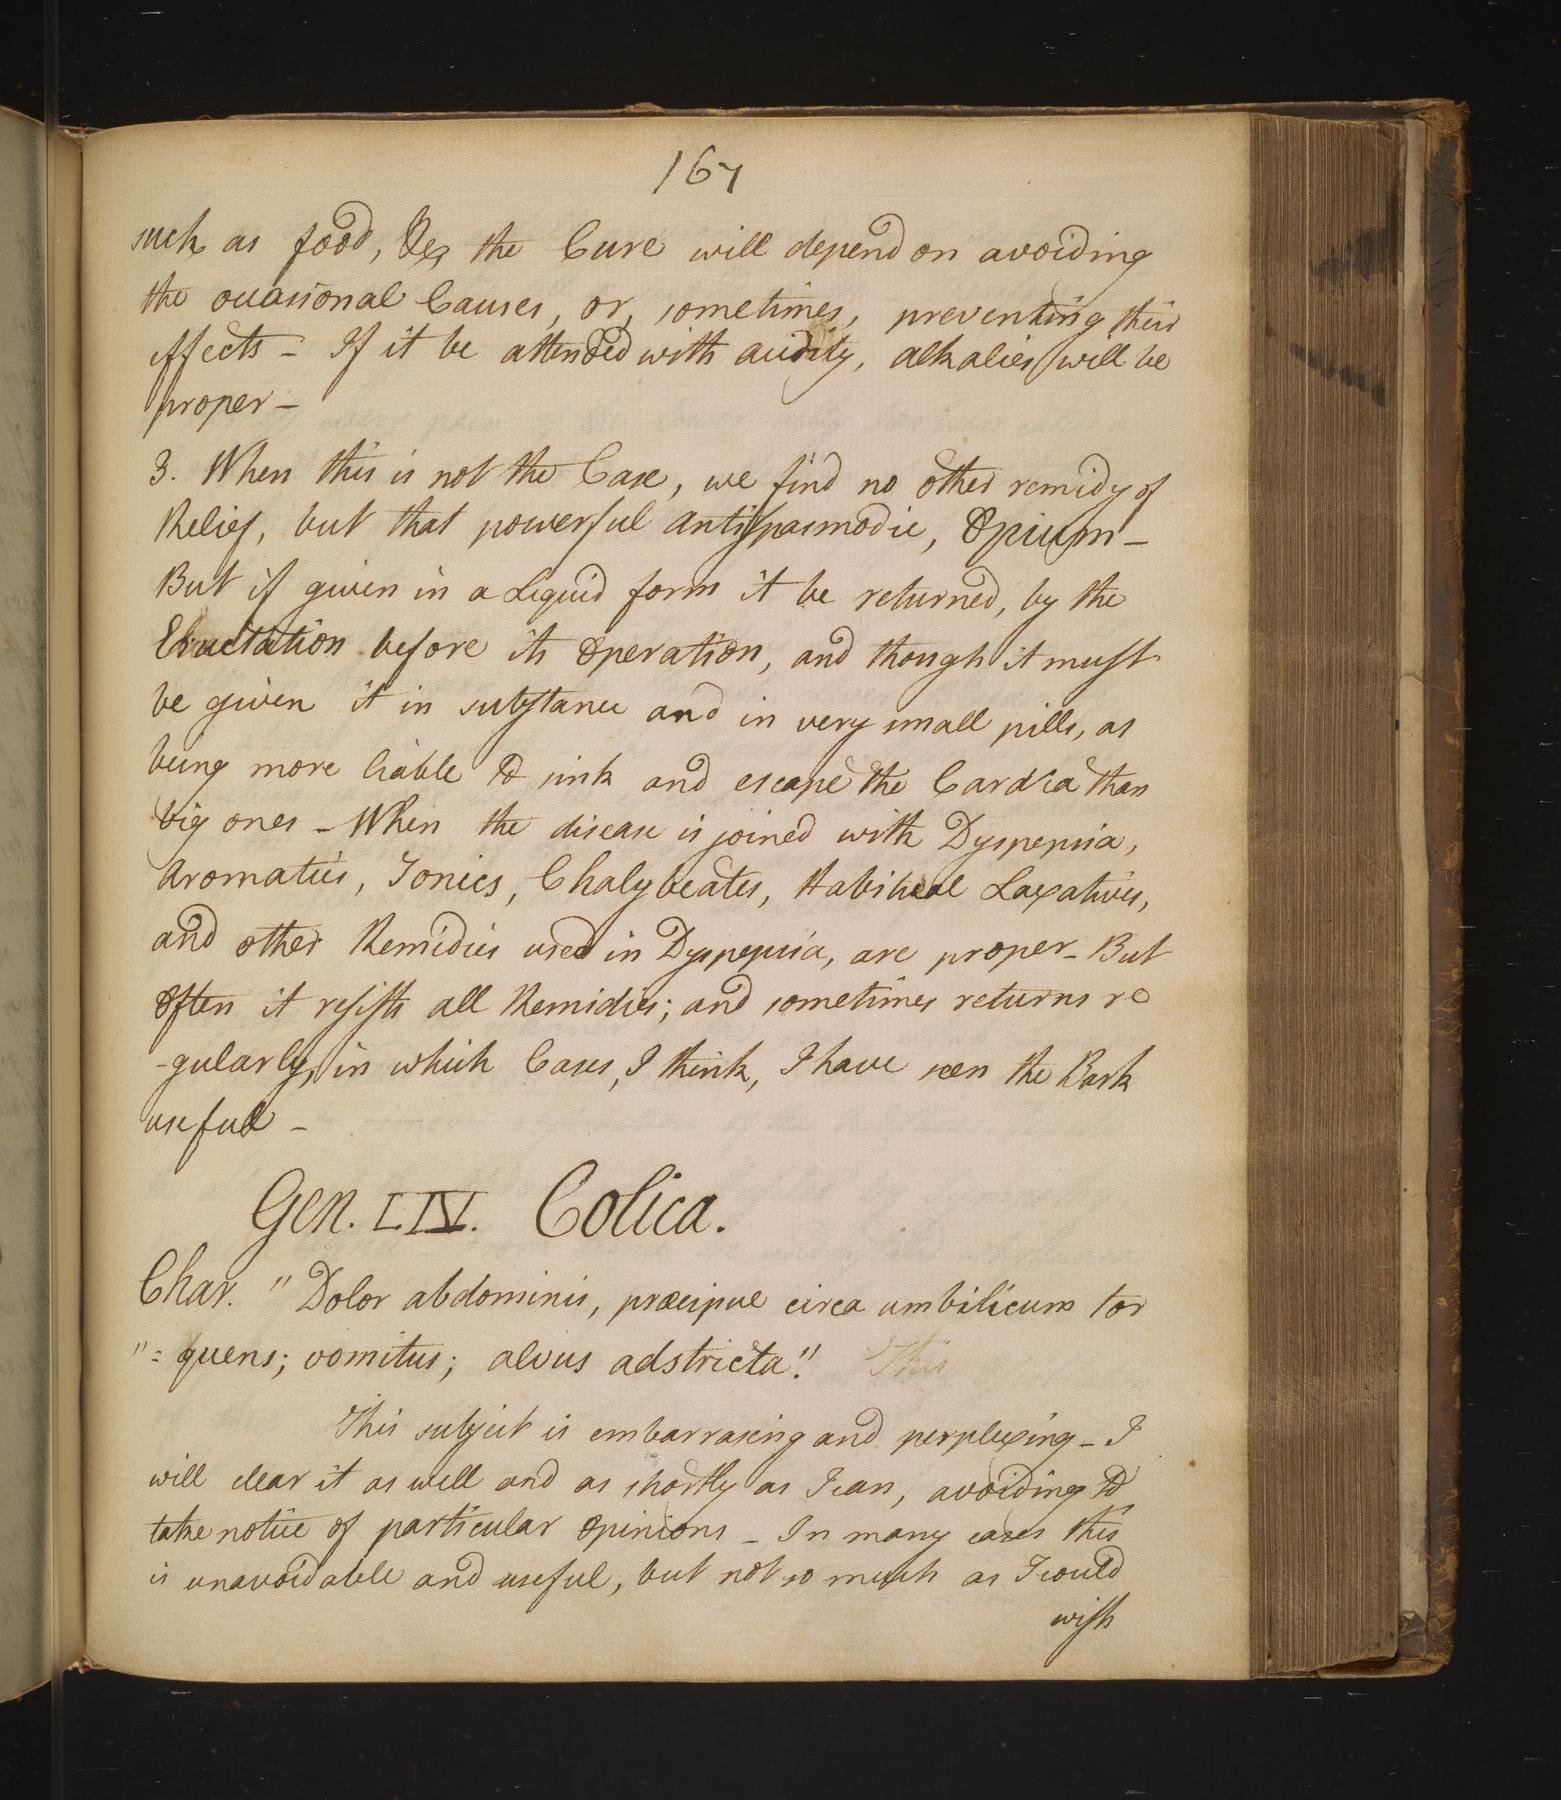 167
such as food, &c, the Cure will depend on avoiding
the occasional Causes, or, sometimes, preventing their
effects – If it be attended with acidity, alkalies will be
proper –
3. When this is not the Case, we find no other remidy of
Relief, but that powerful antispasmodic, Opium –
But if given in a Liquid form it be returned, by the
Eructation before its Operation, and though it must
be given it in substance and in very small pills, as
being more liable to sink and escape the Cardia than
big ones – When the disease is joined with Dyspepsia,
Aromatics, Tonics, Chalybeates, Habitual Laxatives,
and other Remidies used in Dyspepsia, are proper – But
Often it resists all Remidies; and sometimes returns re
-gularly, in which Cases, I think, I have seen the Bark
useful –
Gen. LIV. Colica.
Char. "Dolor abdominis, præcipue circa umbilicum tor
"= quens; vomitus; alvus adstricta." This
This subject is embarrasing and perplexing – I
will clear it as well and as shortly as I can, avoiding to
take notice of particular Opinions – In many cases this
is unavoidable and useful, but not so much as I would
wish